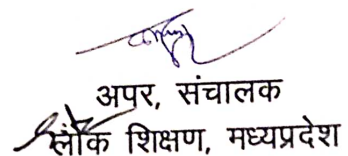 अपर, संचालक
लोक शिक्षण, मध्यप्रदेश